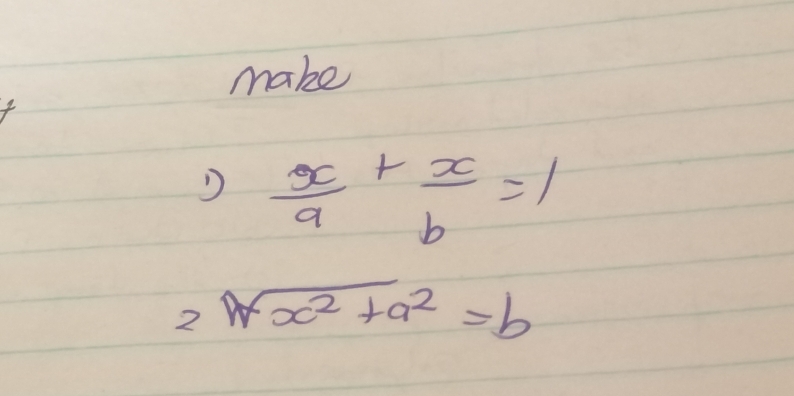 make
1) x/a + x/b = 1
2 √x² + a² = b